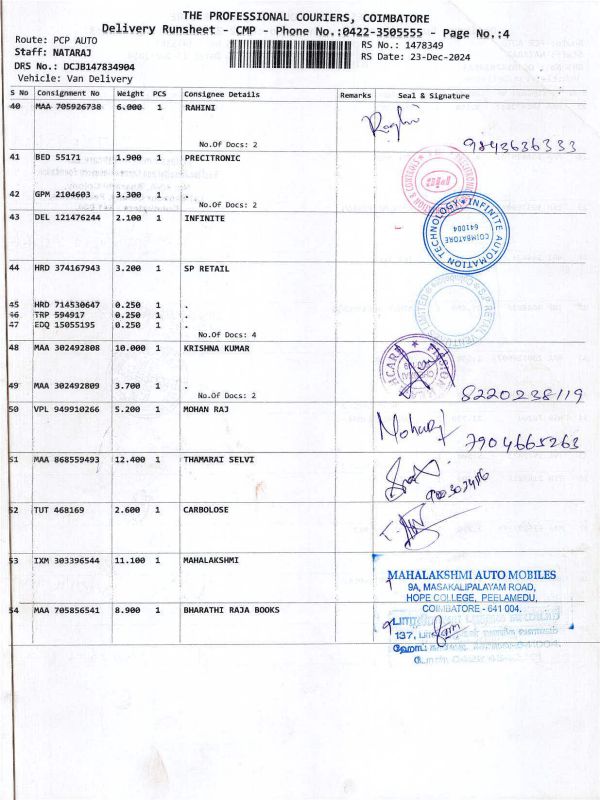 THE PROFESSIONAL COURIERS, COIMBATORE
Delivery Runsheet - CMP - Phone No.:0422-3505555 - Page No.:4
Route: PCP AUTO
Staff: NATARAJ
DRS No.: DCJB147834904
Vehicle: Van Delivery
RS No.: 1478349
RS Date: 23-Dec-2024
S No Consignment No Weight PCS Consignee Details Remarks Seal & Signature
40 MAA 705926738 6.000 1 RAHINI
No.Of Docs: 2
9843636333
41 BED 55171 1.900 1 PRECITRONIC
42 GPM 2104603 3.300 1 .
No.Of Docs: 2
43 DEL 121476244 2.100 1 INFINITE
INFINITE AUTOMATION TECHNOLOGY
COIMBATORE
641004
44 HRD 374167943 3.200 1 SP RETAIL
45 HRD 714530647 0.250 1 .
46 TRP 594917 0.250 1 .
47 EDQ 15055195 0.250 1 .
No.Of Docs: 4
48 MAA 302492808 10.000 1 KRISHNA KUMAR
49 MAA 302492809 3.700 1 .
No.Of Docs: 2
8220238119
50 VPL 949910266 5.200 1 MOHAN RAJ
Moharj
7904665263
51 MAA 868559493 12.400 1 THAMARAI SELVI
52 TUT 468169 2.600 1 CARBOLOSE
53 IXM 303396544 11.100 1 MAHALAKSHMI
MAHALAKSHMI AUTO MOBILES
9A, MASAKALIPALAYAM ROAD,
HOPE COLLEGE, PEELAMEDU,
COIMBATORE - 641 004.
54 MAA 705856541 8.900 1 BHARATHI RAJA BOOKS
137,